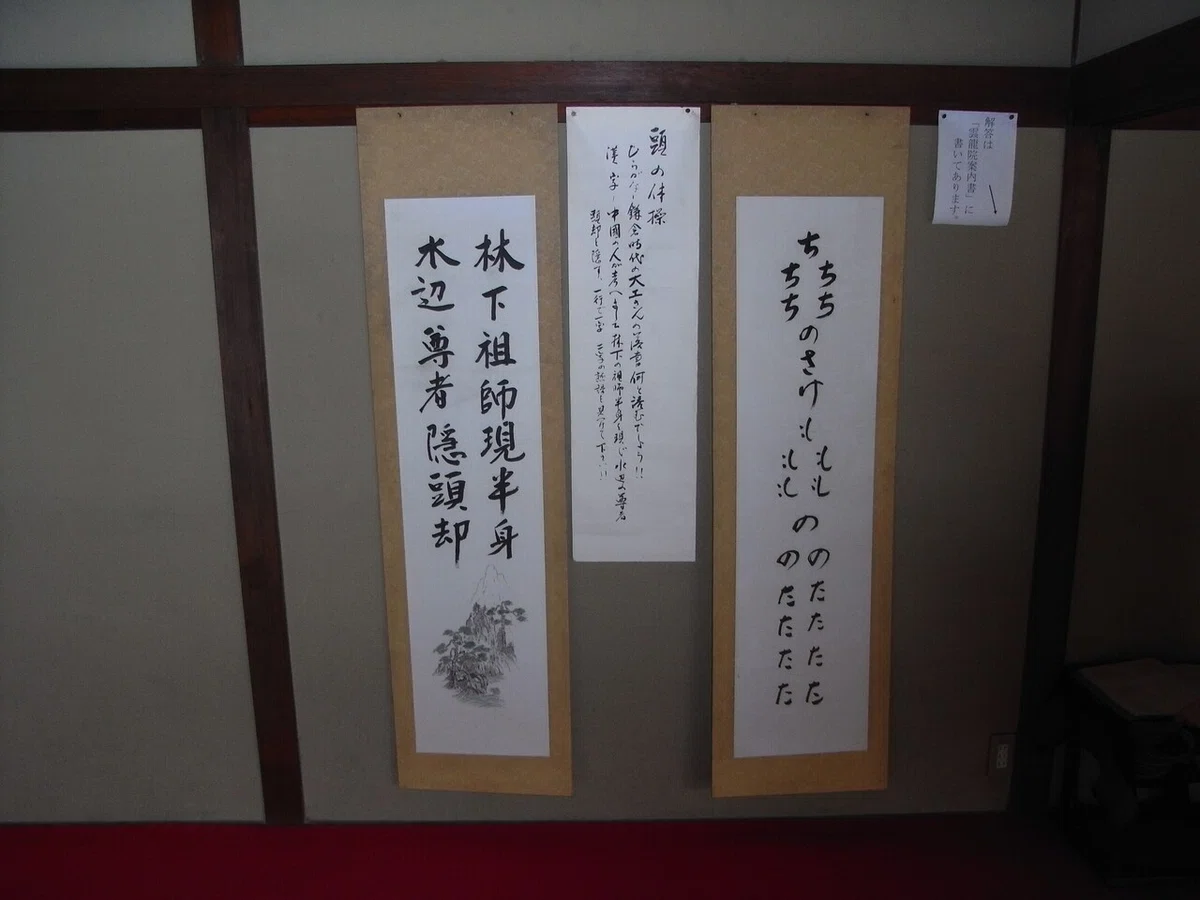 解答は
「雲龍院案内書」に
書いてあります。
ち
ちち
ちち
のさけ
も
もも
もも
の
のたたたた
のたたたた
頭の体操
ひらがな－鎌倉時代の大工さんの落書 何と読むでしょう!!
漢字－中國の人が考へました林下の祖師半身を現じ水辺の尊者
頭却を隠す、一行で一字 二字の熟語を見つけて下さい!!
林下祖師現半身
水辺尊者隠頭却